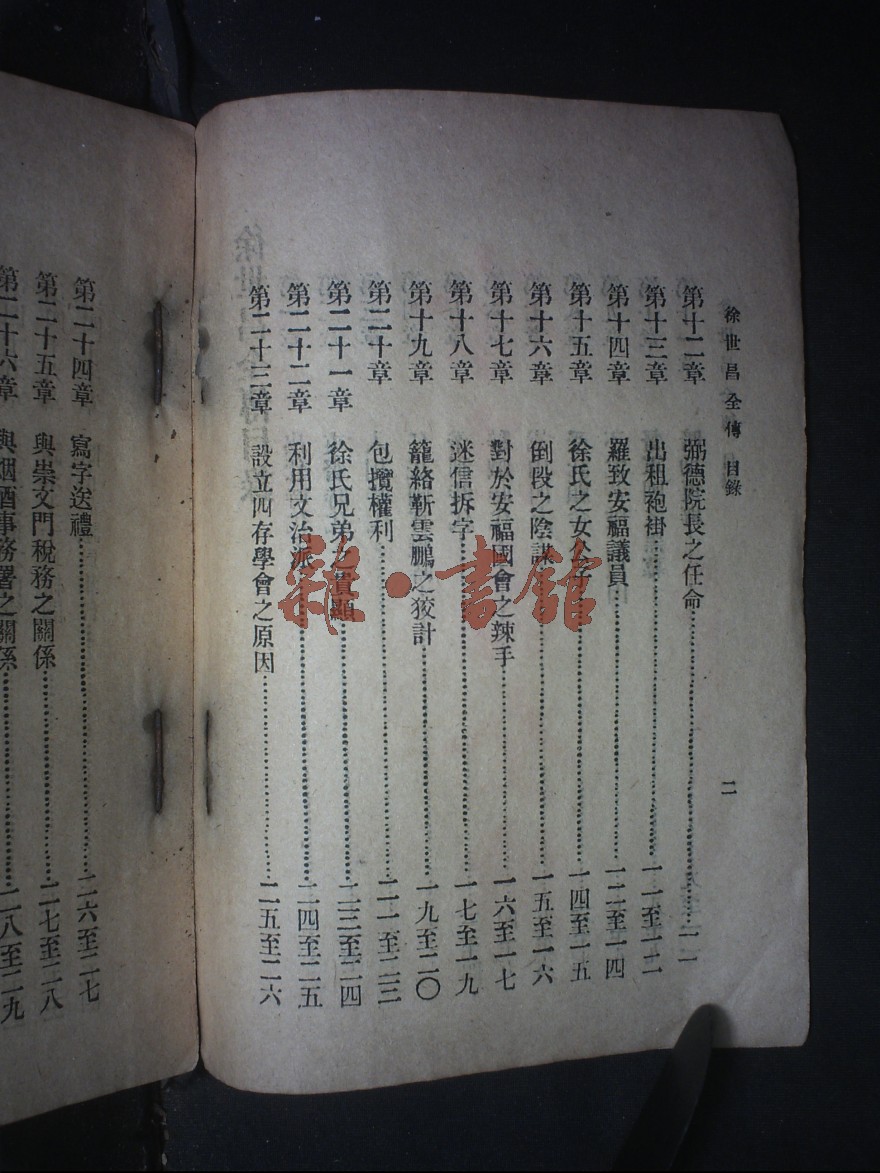 徐世昌全傳 目錄 二
第十二章 弼德院長之任命……一一
第十三章 出租袍褂……一一至一二
第十四章 羅致安福議員……一二至一四
第十五章 徐氏之女公子……一四至一五
第十六章 倒段之陰謀……一五至一六
第十七章 對於安福國會之辣手……一六至一七
第十八章 迷信拆字……一七至一九
第十九章 籠絡靳雲鵬之狡計……一九至二〇
第二十章 包攬權利……二一至二三
第二十一章 徐氏兄弟之貴顯……二三至二四
第二十二章 利用文治派……二四至二五
第二十三章 設立四存學會之原因……二五至二六
第二十四章 寫字送禮……二六至二七
第二十五章 與崇文門稅務之關係……二七至二八
第二十六章 與烟酒事務署之關係……二八至二九
雜·書館